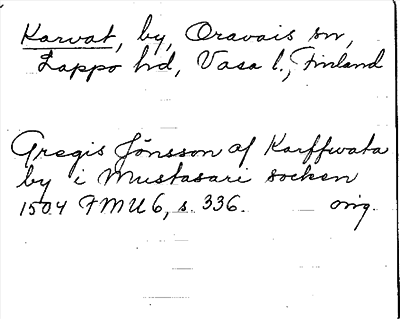 Karvat, by, Oravais sn,
Lappo hd, Vasa l., Finland
Gregis Jönsson af Karffwata
by i Mustasari socken
1504 FMU 6, s. 336. orig.